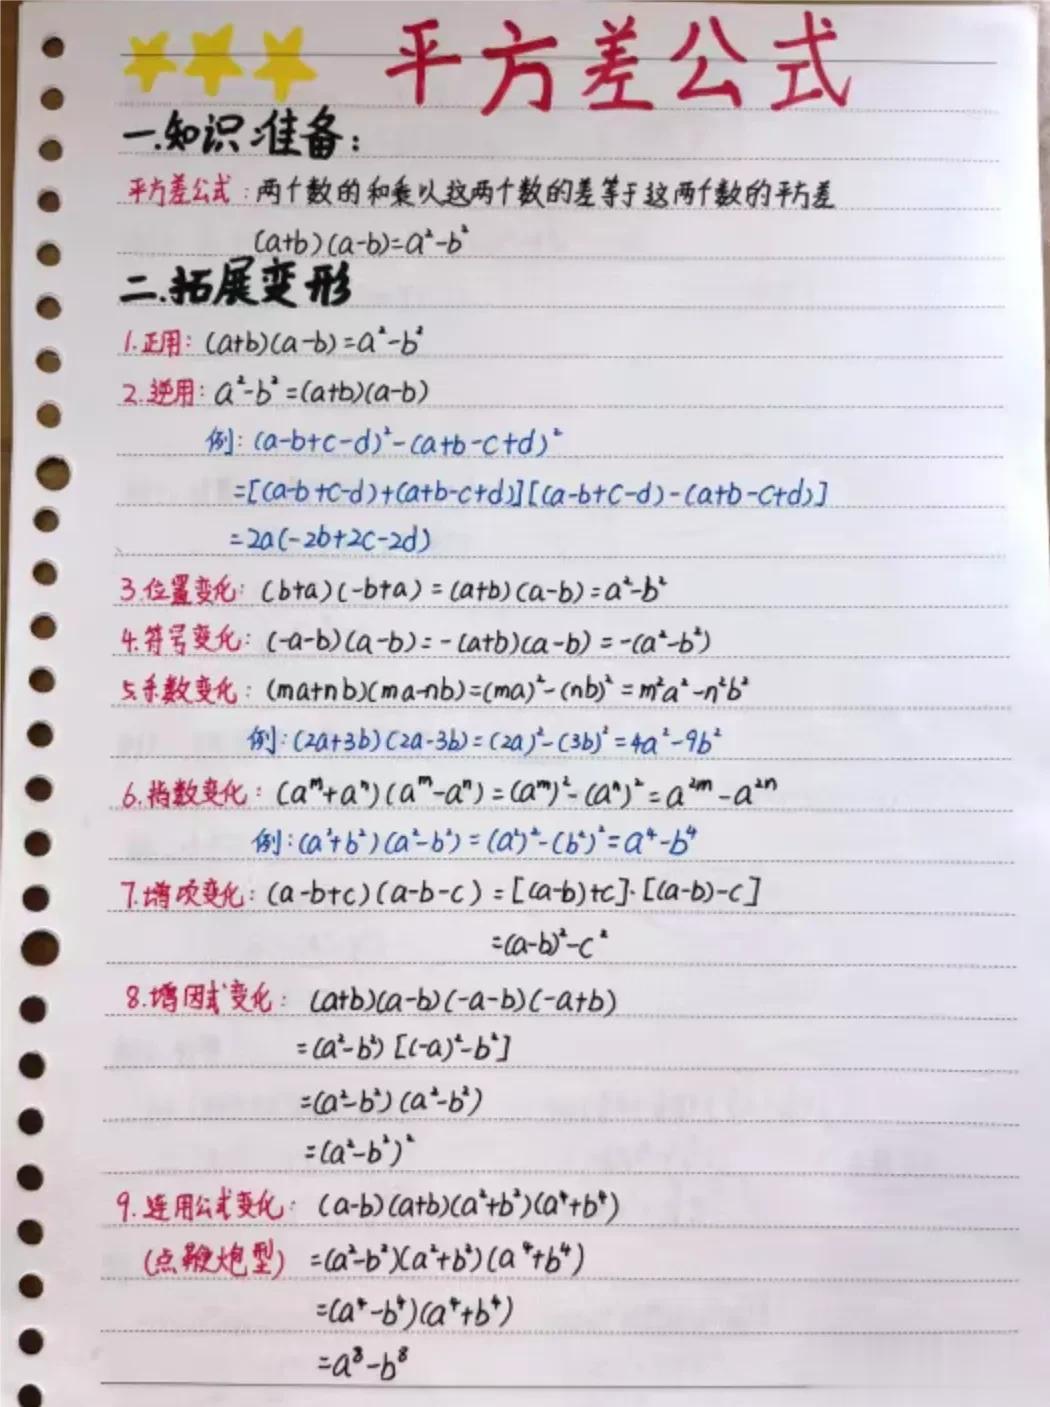 平方差公式
一.知识准备:
平方差公式:两个数的和乘以这两个数的差等于这两个数的平方差
(a+b)(a-b)=a²-b²
二.拓展变形
1.正用:(a+b)(a-b)=a²-b²
2.逆用:a²-b²=(a+b)(a-b)
例:(a-b+c-d)²-(a+b-c+d)²
=[(a-b+c-d)+(a+b-c+d)][(a-b+c-d)-(a+b-c+d)]
=2a(-2b+2c-2d)
3.位置变化:(b+a)(-b+a)=(a+b)(a-b)=a²-b²
4.符号变化:(-a-b)(a-b)=-(a+b)(a-b)=-(a²-b²)
5.系数变化:(ma+nb)(ma-nb)=(ma)²-(nb)²=m²a²-n²b²
例:(2a+3b)(2a-3b)=(2a)²-(3b)²=4a²-9b²
6.指数变化:(aᵐ+aⁿ)(aᵐ-aⁿ)=(aᵐ)²-(aⁿ)²=a²ᵐ-a²ⁿ
例:(a²+b²)(a²-b²)=(a²)²-(b²)²=a⁴-b⁴
7.增项变化:(a-b+c)(a-b-c)=[(a-b)+c]·[(a-b)-c]
=(a-b)²-c²
8.增因式变化:(a+b)(a-b)(-a-b)(-a+b)
=(a²-b²)[(-a)²-b²]
=(a²-b²)(a²-b²)
=(a²-b²)²
9.连用公式变化:(a-b)(a+b)(a²+b²)(a⁴+b⁴)
(点鞭炮型) =(a²-b²)(a²+b²)(a⁴+b⁴)
=(a⁴-b⁴)(a⁴+b⁴)
=a⁸-b⁸